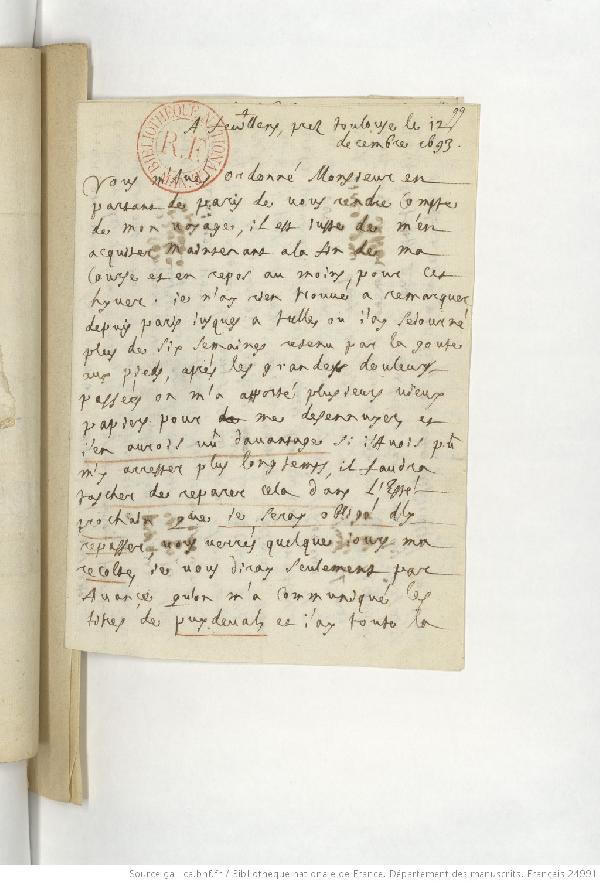 99
A feuillens, prez toulouse le 12
decembre 1693.
BIBLIOTHEQUE NATIONALE
R.F.
MSS
Vous m'aves ordonné Monsieur en
partant de paris de vous rendre compte
de mon voyage, il est iuste de m'en
acquiter maintenant a la fin de ma
course et en repos au moins, pour cet
hyver. ie n'ay rien trouvé a remarquer
depuis paris iusques a tulles ou i'ay sejourné
plus de six semaines retenu par la goute
aux pieds, après les grandes douleurs
passées on m'a apporté plusieurs vieux
papiers pour me désennuyer et
i'en aurois vû davantage si i'avois pû
m'y arrester plus longtemps, il faudra
tascher de reparer cela dans l'Esté
prochain que ie seray obligé d'y
repasser, vous verrés quelque iour ma
recolte, ie vous diray seulement par
avance qu'on m'a communiqué les
titres de puydeval, et i'ay toute la
Source gallica.bnf.fr / Bibliothèque nationale de France. Département des manuscrits. Français 24991